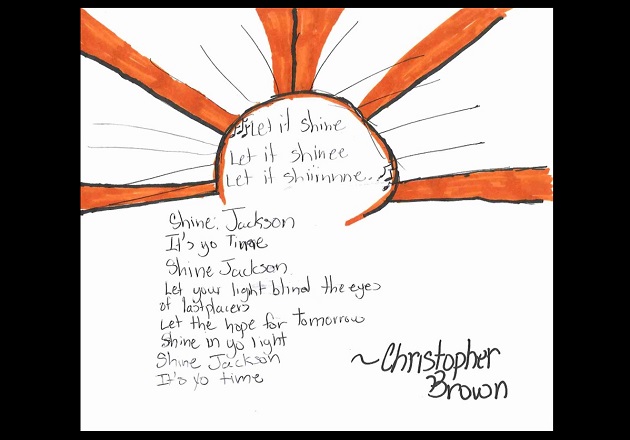 ♫Let it shine
Let it shinee
Let it shiiinnne..♫
Shine Jackson
It's yo Time
Shine Jackson
Let your light blind the eyes
of lastplacers
Let the hope for tomorrow
Shine in yo light
Shine Jackson
It's yo time
~Christopher
Brown